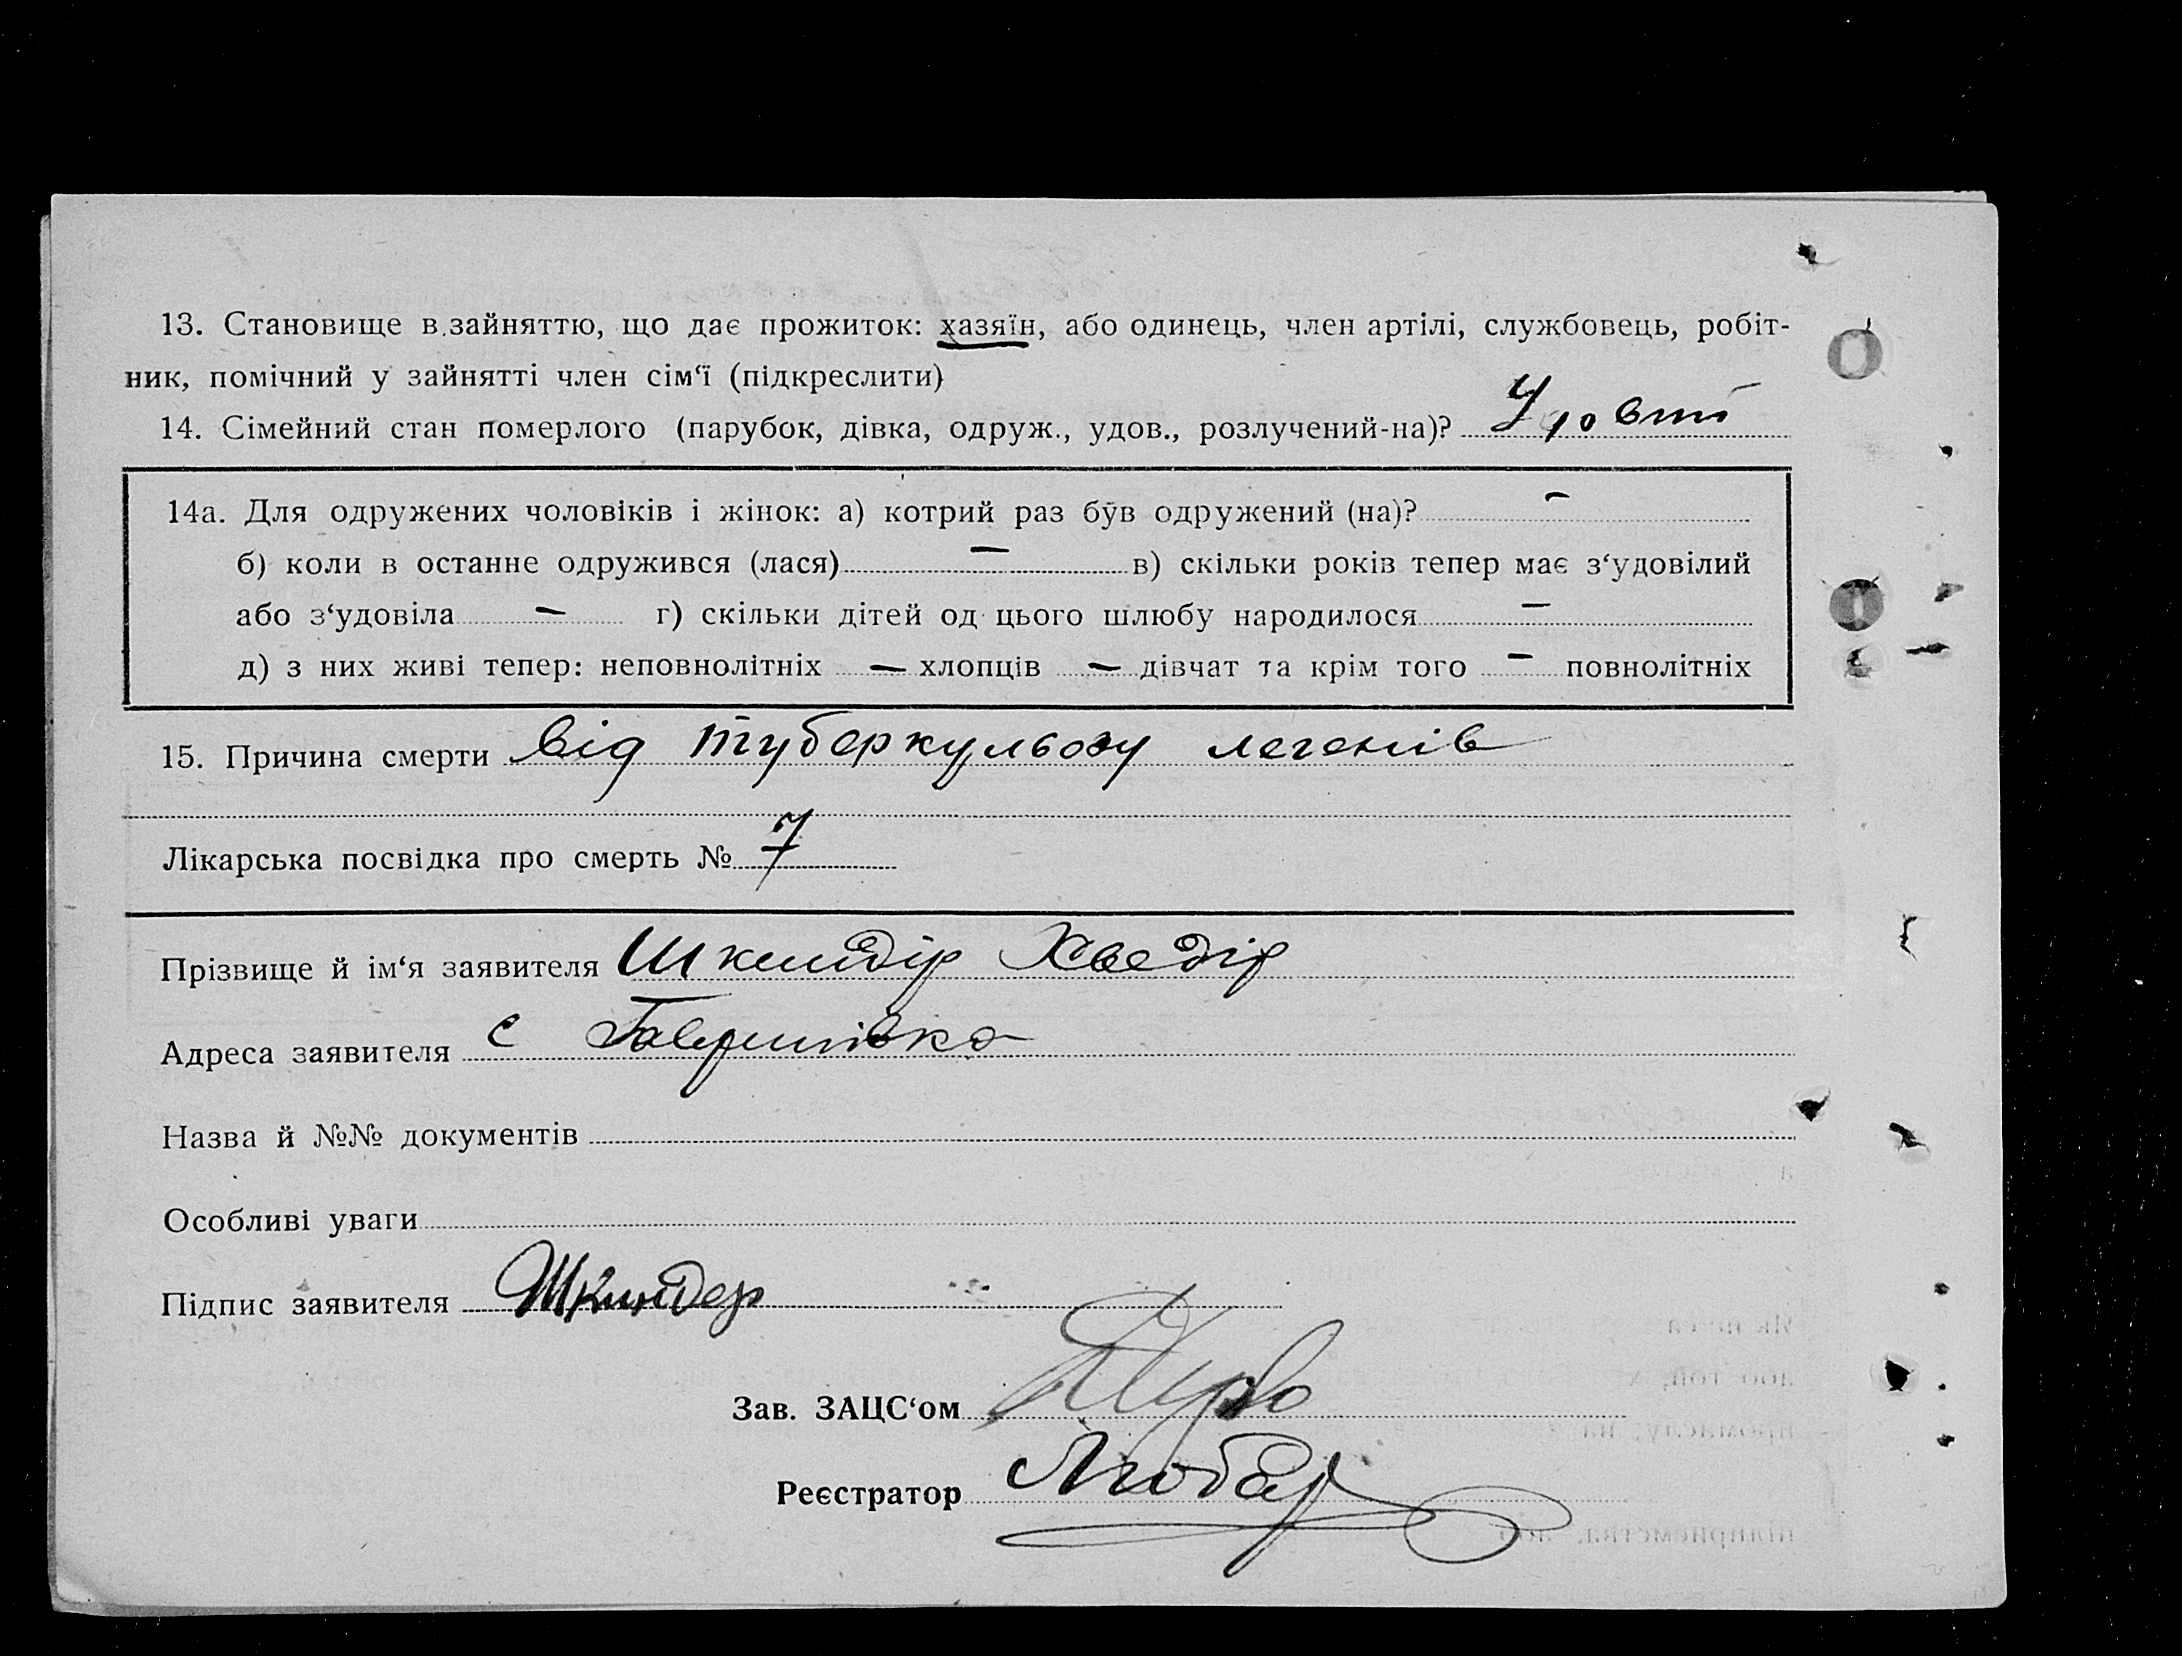 13. Становище в зайняттю, що дає прожиток: хазяїн, або одинець, член артілі, службовець, робіт-
ник, помічний у зайнятті член сім‘ї (підкреслити)
14. Сімейний стан померлого (парубок, дівка, одруж., удов., розлучений-на)?
14а. Для одружених чоловіків і жінок: а) котрий раз був одружений (на)? —
б) коли в останне одружився (лася) — в) скільки років тепер має з‘удовілий
або з‘удовіла — г) скільки дітей од цього шлюбу народилося —
д) з них живі тепер: неповнолітніх — хлопців — дівчат та крім того — повнолітніх
15. Причина смерти від туберкульозу легенів
Лікарська посвідка про смерть № 7
Прізвище й ім‘я заявителя Шкиндір Хведір
Адреса заявителя с Гавришівка
Назва й №№ документів
Особливі уваги
Підпис заявителя Шкиндер
Зав. ЗАЦС‘ом
Реєстратор